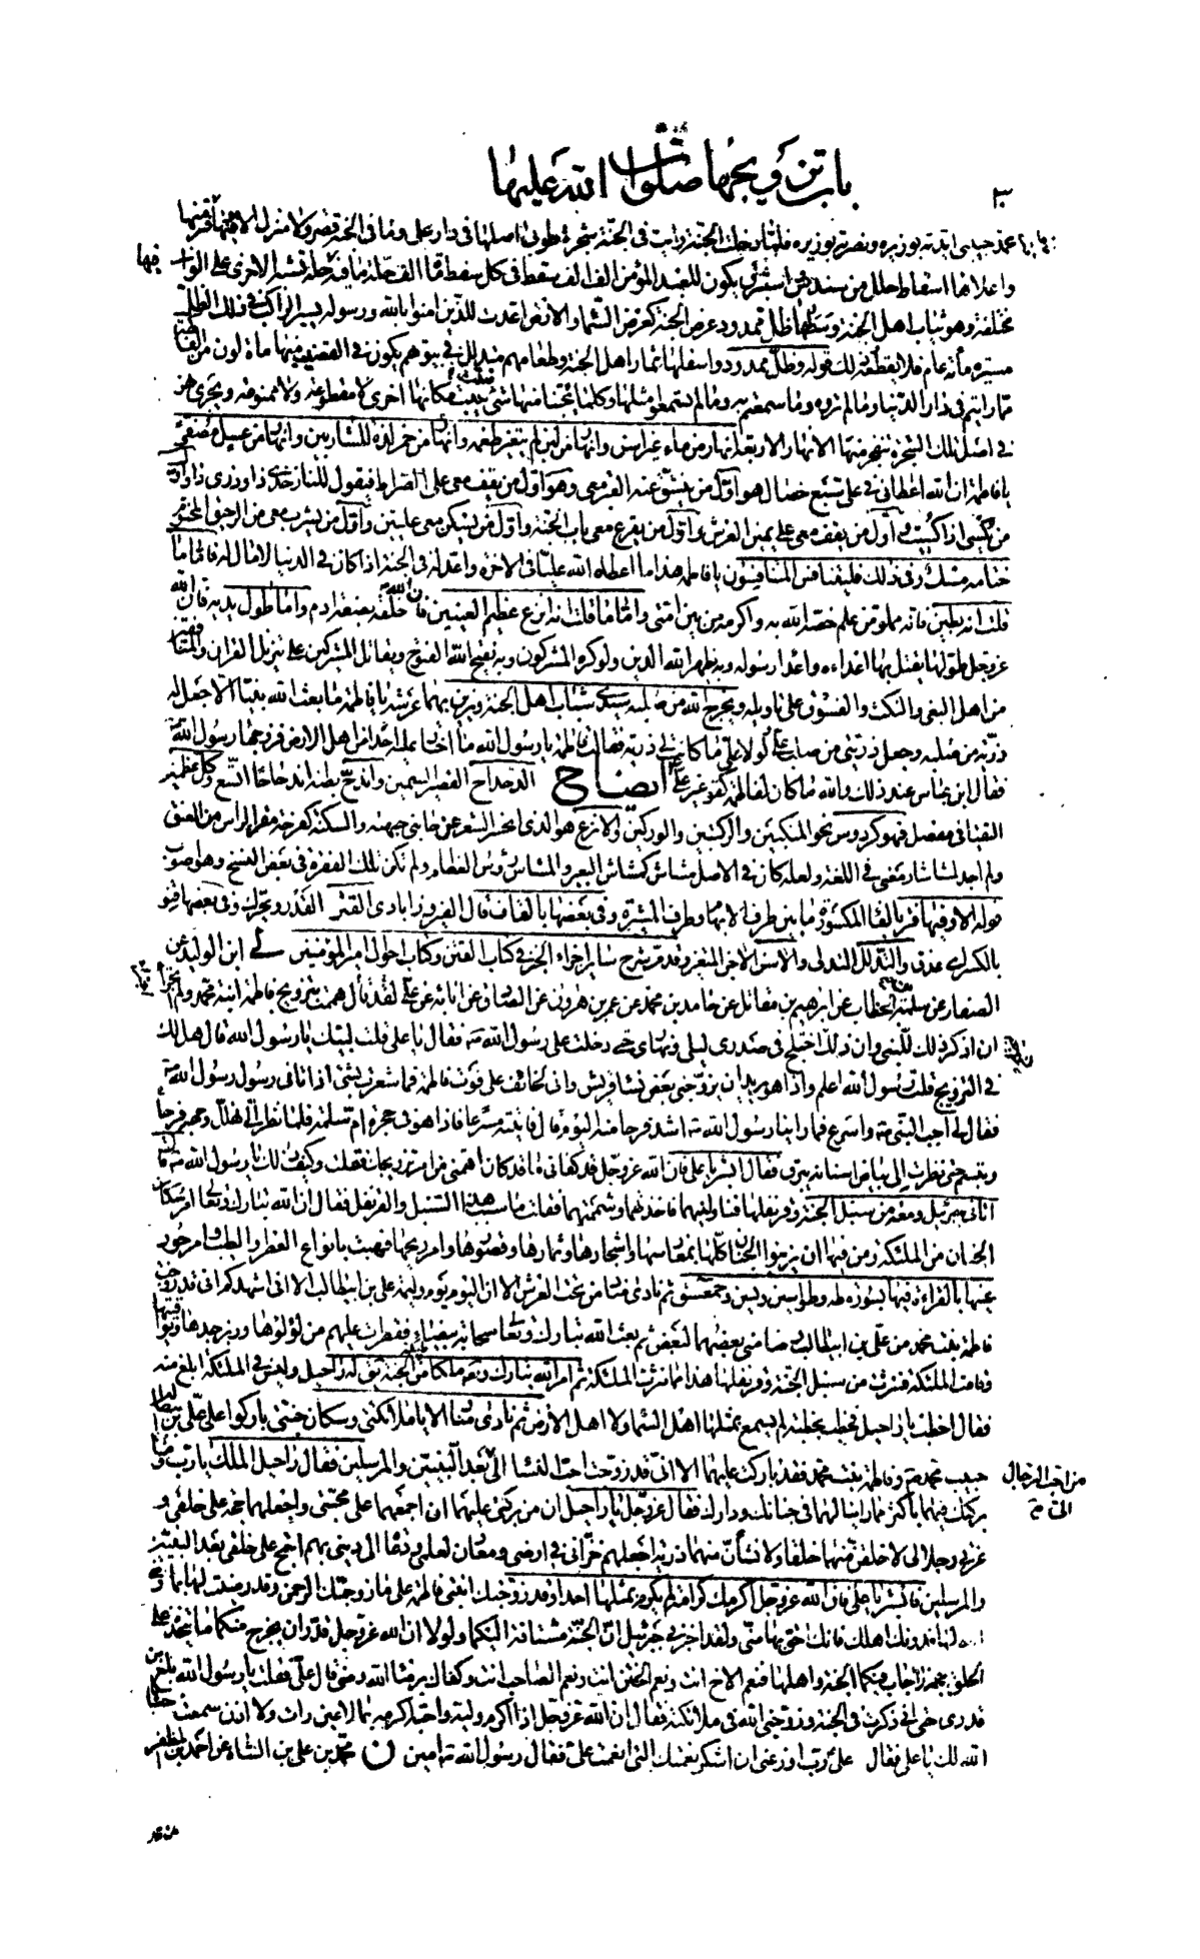 باب تزويجها صلوات الله عليها
٣٠
محمد حبيبي ايدته بوزيره ونصرته بوزيره فلما دخلت الجنة رايت في الجنة شجرة طوبى اصلها في دار علي وما في الجنة قصر ولا منزل الا وفيها فرع منها
واعلاها اسفاط حلل من سندس واستبرق يكون للعبد المؤمن الف الف سفط في كل سفط مائة الف حلة ما فيها حلة تشبه الاخرى على الوان
مختلفة وهو ثياب اهل الجنة وسطها ظل ممدود عرض الجنة كعرض السماء والارض اعدت للذين امنوا بالله ورسوله يسير الراكب في ذلك الظل
مسيرة مائة عام فلا يقطعه وذلك قوله وظل ممدود واسفلها ثمار اهل الجنة وطعامهم متدلل في بيوتهم يكون في القضيب منها مائة لون من الفاكهة
مما رايتم في دار الدنيا وما لم تروه وما سمعتم به وما لم تسمعوا مثلها وكلما يجتنى منها شيء نبتت مكانها اخرى لا مقطوعة ولا ممنوعة ويجري نهر
في اصل تلك الشجرة ينفجر منها الانهار الاربعة انهار من ماء غير اسن وانهار من لبن لم يتغير طعمه وانهار من خمر لذة للشاربين وانهار من عسل مصفى
يا فاطمة ان الله اعطاني في علي سبع خصال هو اول من ينشق عنه القبر معي وهو اول من يقف معي على الصراط فيقول للنار خذي ذا وذري ذا واول
من يكسى اذا كسيت واول من يقف معي على يمين العرش واول من يقرع معي باب الجنة واول من يسكن معي عليين واول من يشرب معي من الرحيق المختوم
ختامه مسك وفي ذلك فليتنافس المتنافسون يا فاطمة هذا ما اعطاه الله عليا في الاخرة واعد له في الجنة اذا كان في الدنيا لا مال له فاما ما
قلت انه بطين فانه مملو من علم خصه الله به واكرمه من بين امتي واما ما قلت انه انزع عظيم العينين فان الله خلقه بصفة ادم واما طول يديه فان الله
عز وجل طولها ليقتل بها اعداءه واعداء رسوله وبه يظهر الله الدين ولو كره المشركون وبه يفتح الله الفتوح ويقاتل المشركين على تنزيل القران والمنافقين
من اهل البغي والنكث والفسوق على تاويله ويخرج الله من صلبه سيدي شباب اهل الجنة ويزين بهما عرشه يا فاطمة ما بعث الله نبيا الا جعل له
ذرية من صلبه وجعل ذريتي من صلب علي ولولا علي ما كانت لي ذرية فقالت فاطمة يا رسول الله ما اختار عليه احدا من اهل الارض فزوجها رسول الله
فقال ابن عباس عند ذلك والله ما كان لفاطمة كفو غير علي ايضاح الدحداح القصير السمين واندح بطنه اندحاحا اتسع وكل عظمين
التقيا في مفصل فهو كردوس نحو المنكبين والركبتين والوركين والانزع هو الذي انحسر الشعر عن جانبي جبهته والسكنة كفرحة مقر الراس من العنق
ولم اجد لشاشار معنى في اللغة ولعله كان في الاصل مشاش كمشاش البعير والمشاش رؤس العظام ولم تكن تلك الفقرة في بعض النسخ وهو اصوب
قوله الا وفيها فتر بالفاء المكسورة ما بين طرف الابهام وطرف المشيرة وفي بعضها بالقاف قال الفيروزابادي القتر القدر ويحرك وفي بعضها قنو
بالكسر اي عذق والتدلل التدلي والاسن الاجن المتغير وقد مر شرح ساير اجزاء الخبر في كتاب الفتن وكتاب احوال امير المؤمنين ابن الوليد عن
الصفار عن سلمة بن الخطاب عن ابرهيم بن مقاتل عن حامد بن محمد عن عمر بن هرون عن الصادق عن ابائه عن علي لقد قال هممت بتزويج فاطمة ابنة محمد ولم اتجرا
ان اذكر ذلك للنبي وان ذلك اختلج في صدري ليلي ونهاري حتى دخلت على رسول الله ص فقال يا علي قلت لبيك يا رسول الله قال هل لك
في التزويج قلت رسول الله اعلم واذا هو يريد ان يزوجني بعض نساء قريش واني لخائف على فوت فاطمة فما شعرت بشيء اذ اتاني رسول رسول الله ص
فقال لي اجب النبي ص واسرع فما راينا رسول الله ص اشد فرحا منه اليوم قال فاتيته مسرعا فاذا هو في حجرة ام سلمة فلما نظر الي تهلل وجهه فرحا
وتبسم حتى نظرت الى بياض اسنانه يبرق فقال ابشر يا علي فان الله عز وجل قد كفاني ما قد كان اهمني من امر تزويجك فقلت وكيف ذلك يا رسول الله ص قال
اتاني جبرئيل ومعه من سنبل الجنة وقرنفلها فناولنيهما فاخذتهما وشممتهما فقلت ما سبب هذا السنبل والقرنفل فقال ان الله تبارك وتعالى امر سكان
الجنان من الملئكة ومن فيها ان يزينوا الجنان كلها بمغارسها واشجارها وثمارها وقصورها وامر ريحها فهبت بانواع العطر والطيب وامر حور
عينها بالقراءة فيها بسورة طه وطواسين ويس وحمعسق ثم نادى مناد من تحت العرش الا ان اليوم يوم وليمة علي بن ابيطالب الا اني اشهدكم اني قد زوجت
فاطمة بنت محمد من علي بن ابيطالب رضا مني بعضهما لبعض ثم بعث الله تبارك وتعالى سحابة بيضاء فقطرت عليهم من لؤلؤها وزبرجدها ويواقيتها
وقامت الملئكة فنثرت من سنبل الجنة وقرنفلها هذا مما نثرت الملئكة ثم امر الله تبارك وتعالى ملكا من الجنة يقال له راحيل وليس في الملئكة ابلغ منه
فقال اخطب يا راحيل فخطب بخطبة لم يسمع بمثلها اهل السماء ولا اهل الارض ثم نادى مناد الا يا ملائكتي وسكان جنتي باركوا على علي بن ابيطالب
حبيب محمد ص وفاطمة بنت محمد فقد باركت عليهما الا اني قد زوجت احب النساء الي بعد النبيين والمرسلين فقال راحيل الملك يا رب وما
من احب الرجال
الي ص م
بركتك فيهما باكثر مما راينا لهما في جنانك ودارك فقال عز وجل يا راحيل ان من بركتي عليهما ان اجمعهما على محبتي واجعلهما حجة على خلقي و
عزتي وجلالي لاخلقن منهما خلقا ولانشأن منهما ذرية اجعلهم خزاني في ارضي ومعادن لعلمي ودعاة الى ديني بهم احتج على خلقي بعد النبيين
والمرسلين فابشر يا علي فان الله عز وجل اكرمك كرامة لم يكرم بمثلها احدا وقد زوجتك ابنتي فاطمة على ما زوجك الرحمن وقد رضيت لها بما رضي
الله لها فدونك اهلك فانك احق بها مني ولقد اخبرني جبرئيل ان الجنة مشتاقة اليكما ولولا ان الله عز وجل قدر ان يخرج منكما ما يتخذه على
الخلق حجة لاجاب فيكما الجنة واهلها فنعم الاخ انت ونعم الختن انت ونعم الصاحب انت وكفاك برضا الله رضى قال علي فقلت يا رسول الله بلغ من
قدري حتى اني ذكرت في الجنة وزوجني الله في ملائكته فقال ان الله عز وجل اذا اكرم وليه واحبه اكرمه بما لا عين رات ولا اذن سمعت فحباها
الله لك يا علي فقال علي رب اوزعني ان اشكر نعمتك التي انعمت علي فقال رسول الله ص امين ن محمد بن علي بن الشاه عن احمد بن المظفر